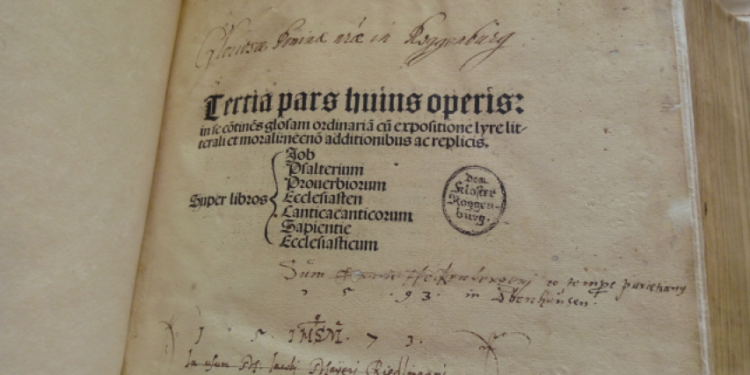 Gloriosæ Dominæ nr̃æ in Roggenburg
Tertia pars huius operis:
in se cōtinēs glosam ordinariā cū expositione lyre lit-
terali et morali: necnō additionibus ac replicis.
Super libros
Job
Psalterium
Prouerbiorum
Ecclesiasten
Canticacanticorum
Sapientie
Ecclesiasticum
Dem
Kloster
Roggen-
burg.
Sum eo tempe
1 5 93. in
1 5 7 3.
In usum